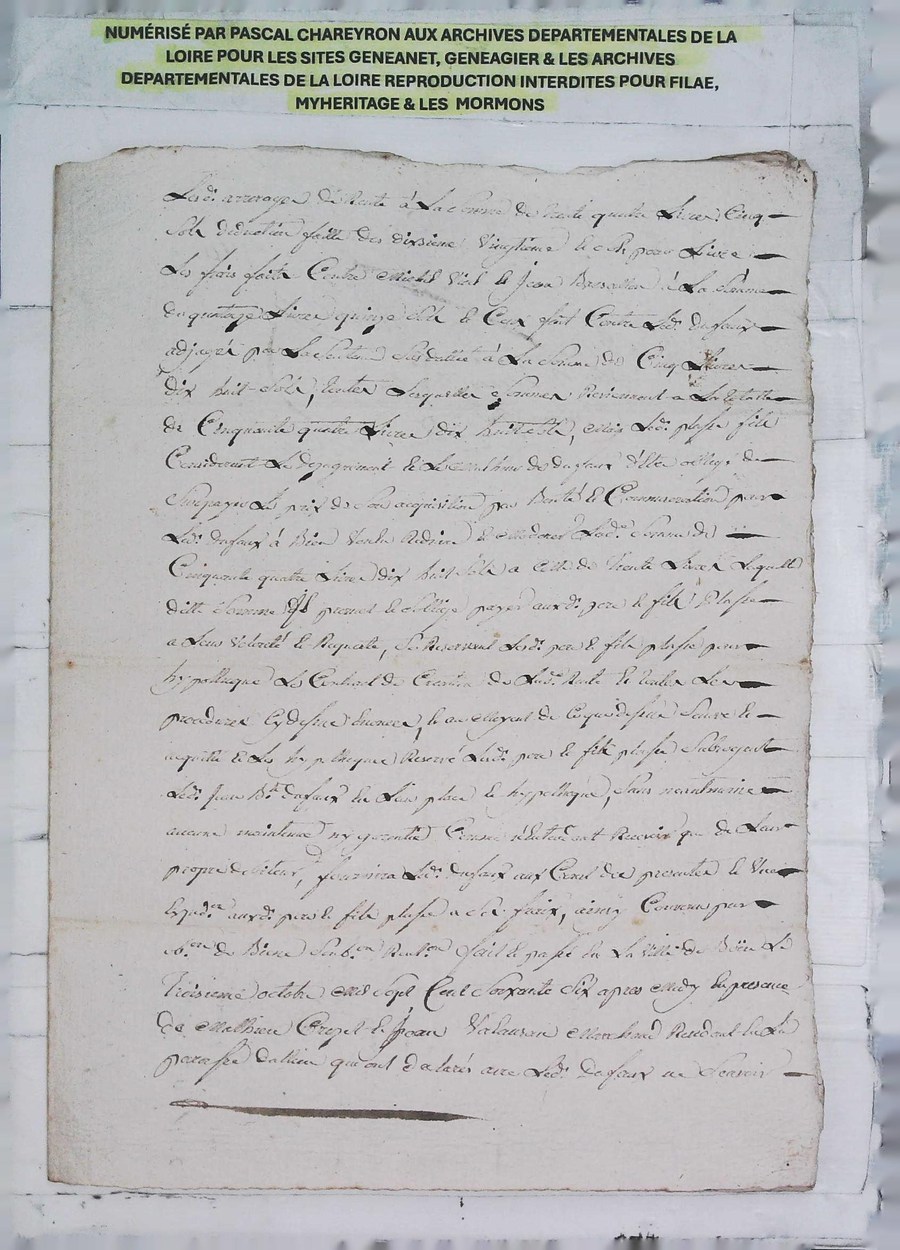 NUMÉRISÉ PAR PASCAL CHAREYRON AUX ARCHIVES DEPARTEMENTALES DE LA
LOIRE POUR LES SITES GENEANET, GENEAGIER & LES ARCHIVES
DEPARTEMENTALES DE LA LOIRE REPRODUCTION INTERDITES POUR FILAE,
MYHERITAGE & LES MORMONS
Lesd. arrerages de Rente à La Somme de trente quatre Livres Cinq
Sols deduction faitte des dixieme Vingtieme et Sols pour Livre
Les frais faits Contre Michel Vial et Jean à La Somme
de quatorze Livres quinze Sols et Ceux fait Contre Led. Dufaux
adjugés par La Sentence à La Somme de Cinq Livres
dix huit Sols, toutes Lesquelles Sommes Reviennent a La totalle
de Cinquante quatre Livres dix huit Sols, Mais Led. plasse fils
Considerant Le et Le de dufaux d'Etre obligé de
Le prix de Son acquisition par Bonté et Commiseration pour
Led. dufaux à Bien Voulu Reduire et Moderer Lad. Somme de
Cinquante quatre Livres dix huit Sols a Celle de trente Livres Laquelle
ditte Somme Il promet et S'oblige payer auxd. pere et fils plasse
a Leur Volonté et Requete, Se Reservant Lesd. pere et fils plasse pour
hypotheque Le Contract de Creation de Lad. Rente et toutes Les
procedures Cy dessus Enoncé, et au Moyen de Ce que dessus Sauve et
acquitté et Les hypotheques Reservé Lesd. pere et fils plasse Subrogent
Led. Jean B.te Dufaux En Leur place et hypotheque, Sans neantmoins
aucune maintenue ny garantie Comme n'entendant Recevoir que de Leur
propre debiteur, fournira Led. Dufaux aux Cens des presentes et Une
Exped.on auxd. pere et fils plasse a Ses fraix, ainsy Convenu par
ob.on de Biens Soub.on Ren.on fait et passé En La Ville de Le
Troisieme octobre Mil Sept Cent Soixante Six apres Midy En presence
de Mathieu Crozet et Jean Valancan Marchand Residant En La
paroisse qui ont declarés avec Led. Dufaux ne Scavoir